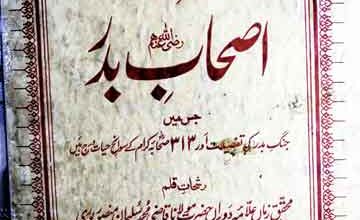 رضی اللہ عنہم
اصحابِ بدر
جس میں
جنگِ بدر کی تفصیلات اور ۳۱۳ صحابہ کرام کے سوانح حیات درج ہیں
رشحاتِ قلم
علامہ دوراں حضرت مولانا قاضی محمد سلیمان منصورپوری